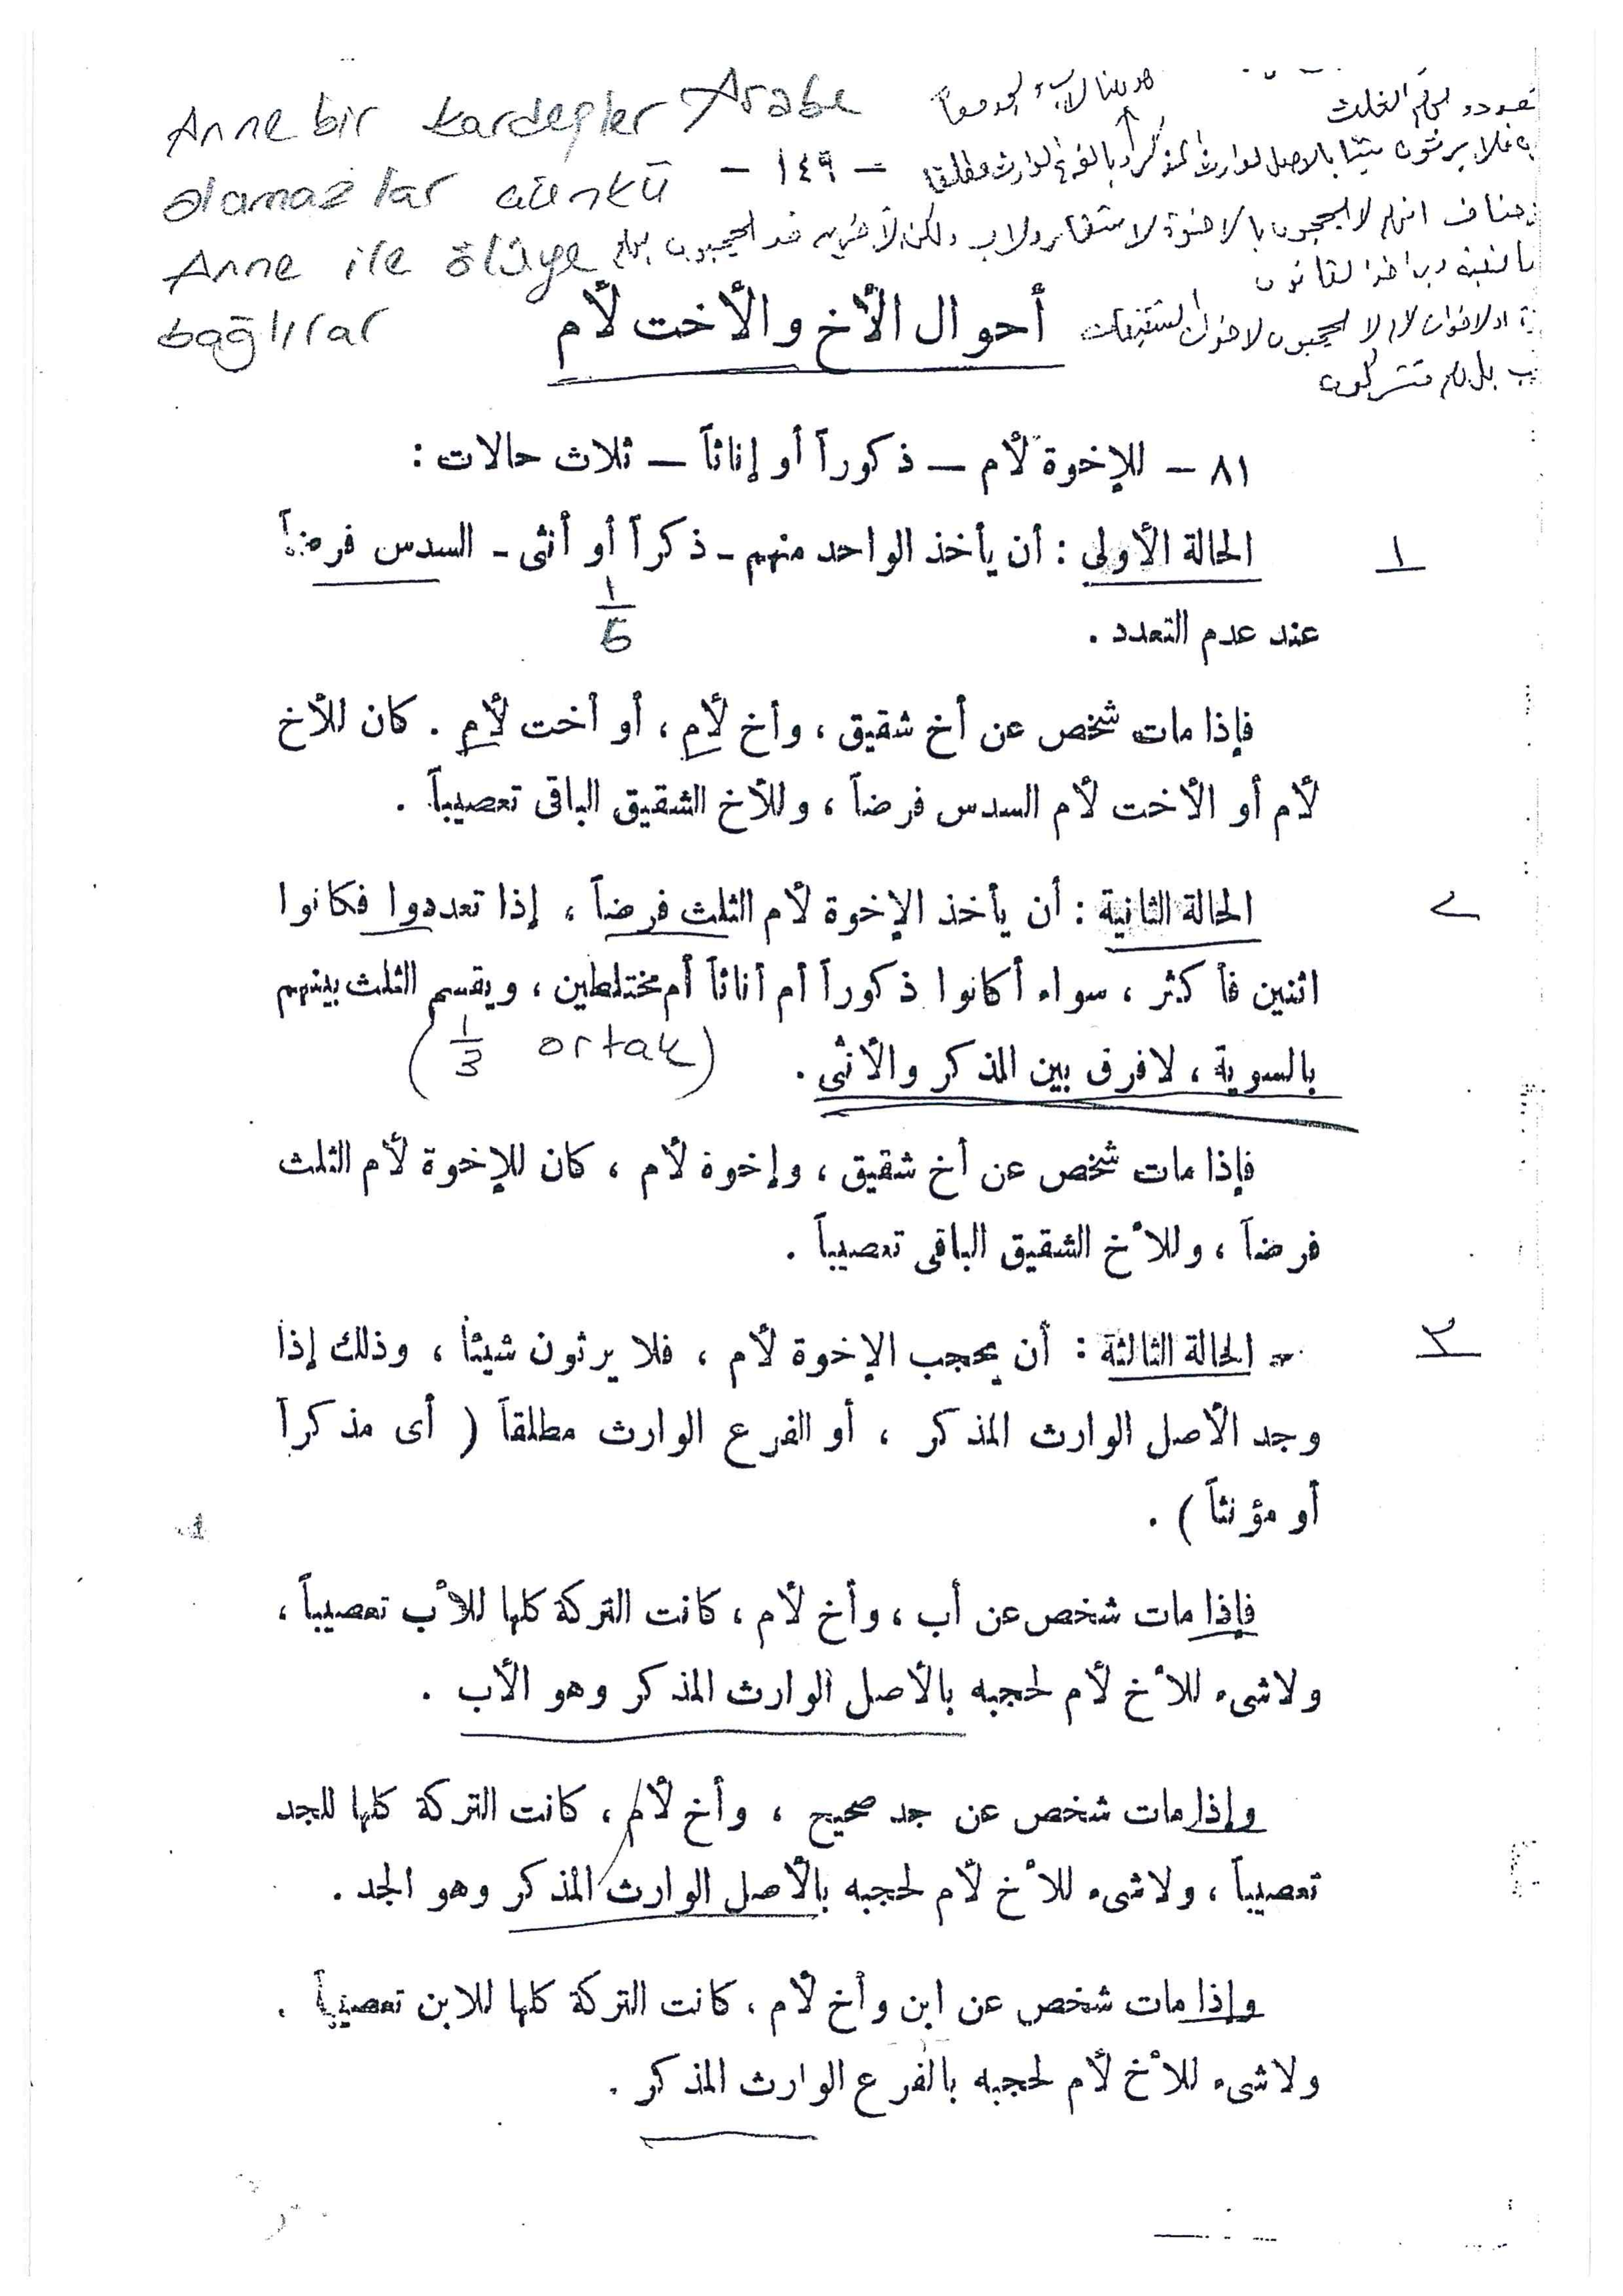 Anne bir kardeşler Asabe
olamazlar çünkü
Anne ile ölüye
bağlırar
تعددو فلهم الثلث
فلا يرثون شيئا بالاصل الوارث المذكر او بالفرع الوارث مطلقا
انهم لا يحجبون بالاخوة الاشقاء ولاب
لا يحجبون
بل هم مشتركون
— ١٤٩ —
أحوال الأخ والأخت لأم
٨١ — للإخوة لأم — ذكوراً أو إناثاً — ثلاث حالات :
١
الحالة الأولى : أن يأخذ الواحد منهم - ذكراً أو أنثى - السدس فرضاً
عند عدم التعدد .
1/6
فإذا مات شخص عن أخ شقيق ، وأخ لأم ، أو أخت لأم . كان للأخ
لأم أو الأخت لأم السدس فرضاً ، وللأخ الشقيق الباقى تعصيباً .
٢
الحالة الثانية : أن يأخذ الإخوة لأم الثلث فرضاً ، إذا تعددوا فكانوا
اثنين فأكثر ، سواء أكانوا ذكوراً أم أناثاً أم مختلطين ، ويقسم الثلث بينهم
بالسوية ، لافرق بين المذكر والأنثى .
(1/3 ortak)
فإذا مات شخص عن أخ شقيق ، وإخوة لأم ، كان للإخوة لأم الثلث
فرضاً ، وللأخ الشقيق الباقى تعصيباً .
٣
الحالة الثالثة : أن يحجب الإخوة لأم ، فلا يرثون شيئاً ، وذلك إذا
وجد الأصل الوارث المذكر ، أو الفرع الوارث مطلقاً ( أى مذكراً
أو مؤنثاً ) .
فإذا مات شخص عن أب ، وأخ لأم ، كانت التركة كلها للأب تعصيباً ،
ولاشىء للأخ لأم لحجبه بالأصل الوارث المذكر وهو الأب .
وإذا مات شخص عن جد صحيح ، وأخ لأم ، كانت التركة كلها للجد
تعصيباً ، ولاشىء للأخ لأم لحجبه بالأصل الوارث المذكر وهو الجد .
وإذا مات شخص عن ابن وأخ لأم ، كانت التركة كلها للابن تعصيباً .
ولاشىء للأخ لأم لحجبه بالفرع الوارث المذكر .